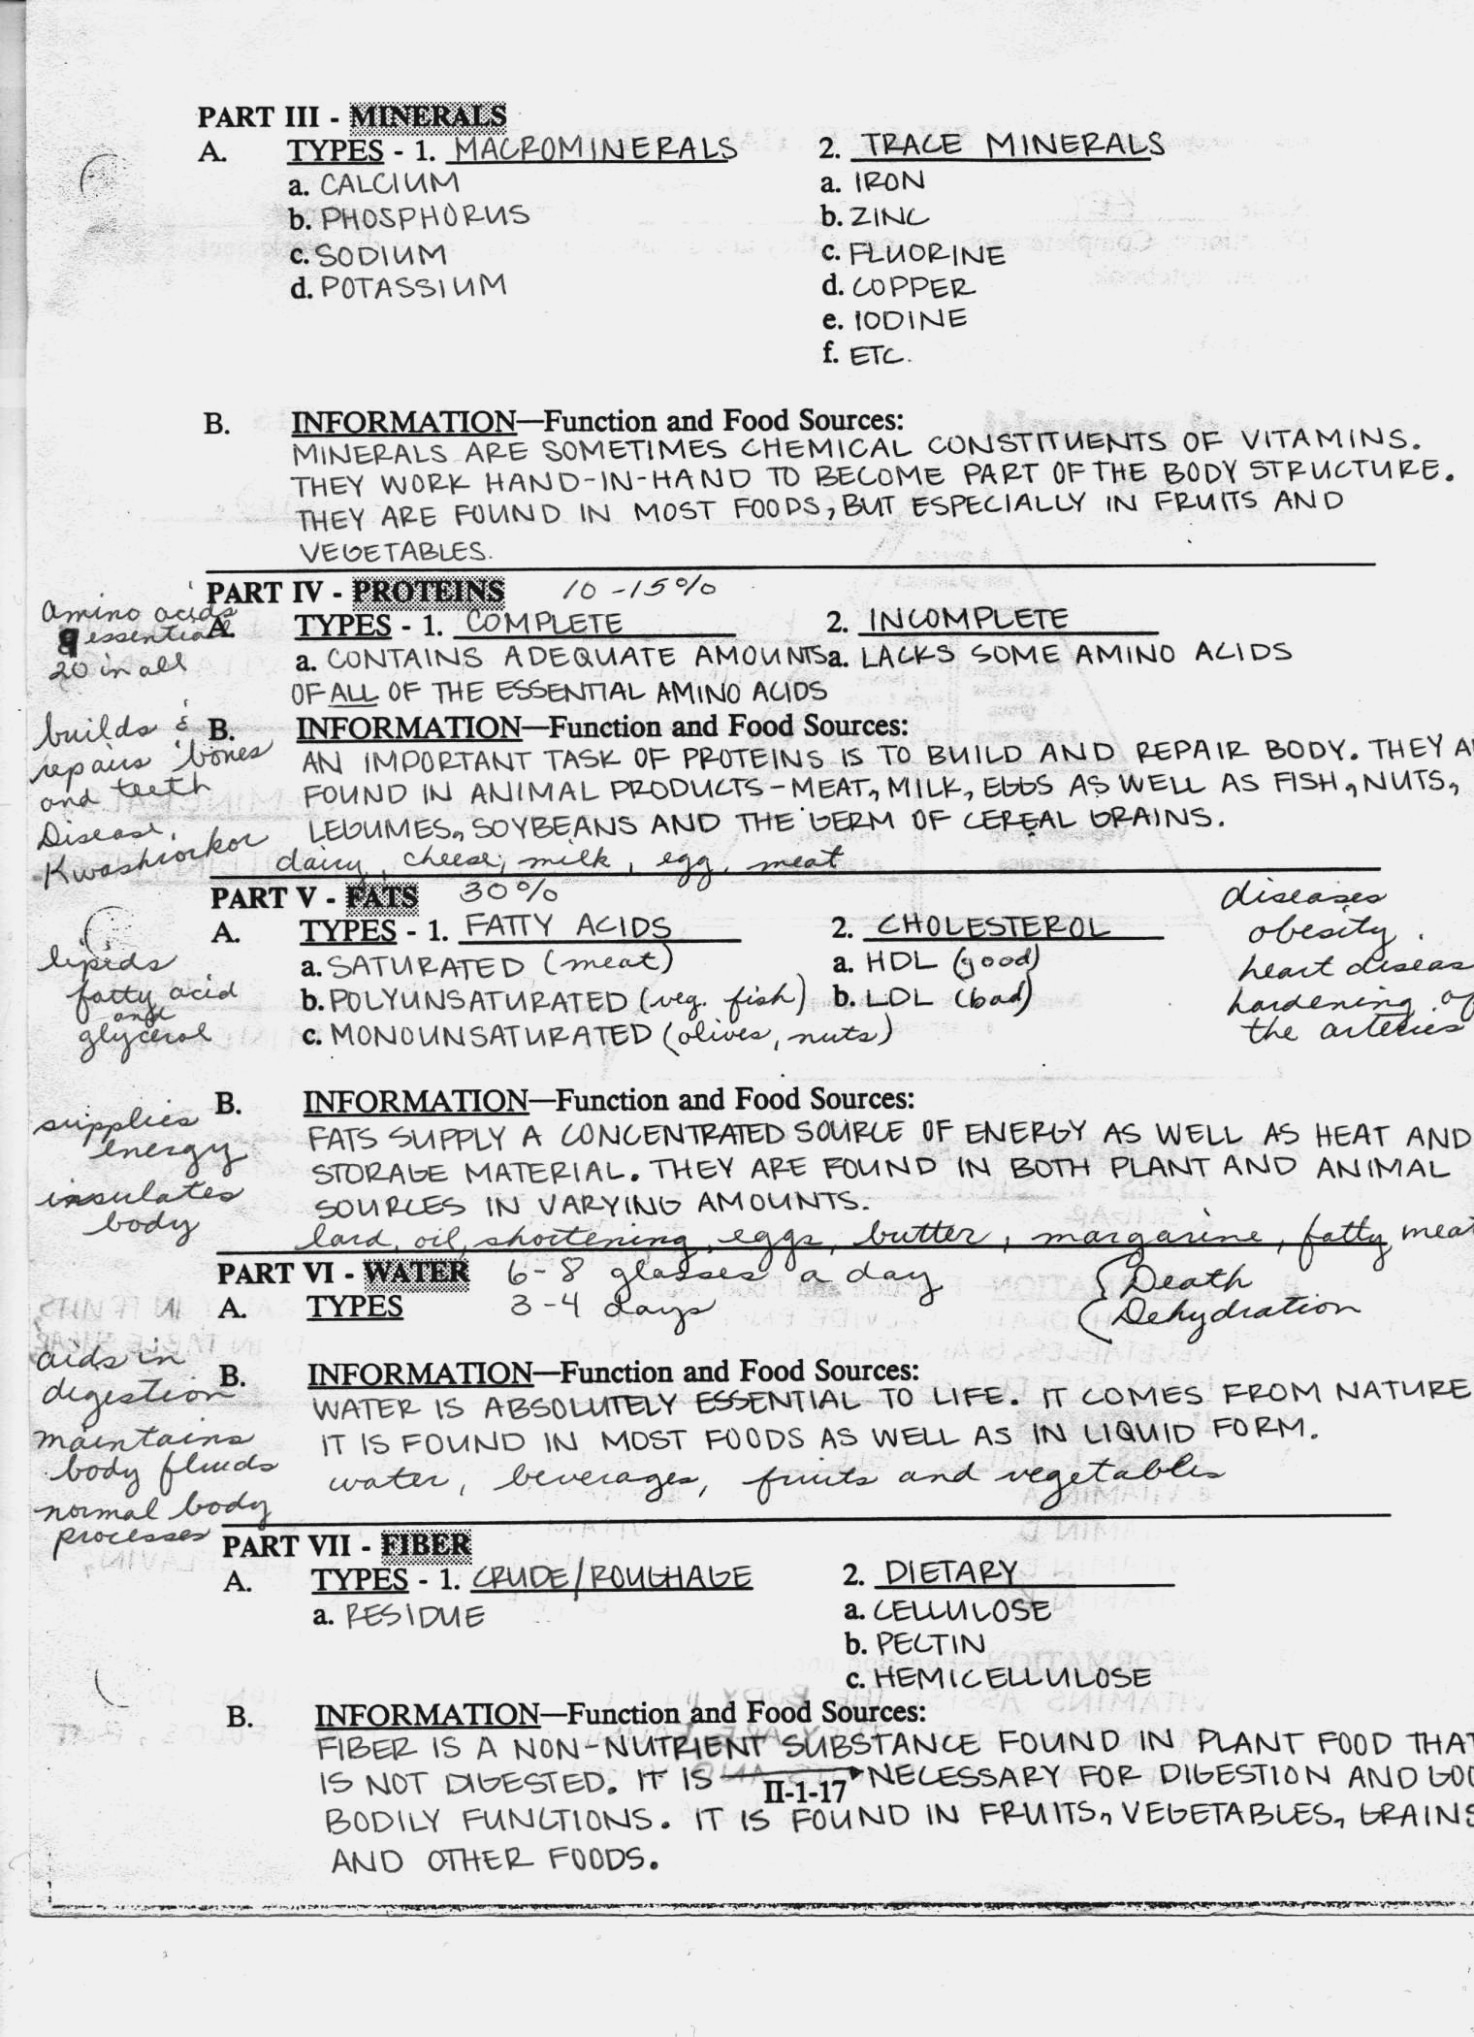 PART III - MINERALS
A. TYPES - 1. MACROMINERALS 2. TRACE MINERALS
a. CALCIUM a. IRON
b. PHOSPHORUS b. ZINC
c. SODIUM c. FLUORINE
d. POTASSIUM d. COPPER
e. IODINE
f. ETC.
B. INFORMATION—Function and Food Sources:
MINERALS ARE SOMETIMES CHEMICAL CONSTITUENTS OF VITAMINS.
THEY WORK HAND-IN-HAND TO BECOME PART OF THE BODY STRUCTURE.
THEY ARE FOUND IN MOST FOODS, BUT ESPECIALLY IN FRUITS AND
VEGETABLES.
PART IV - PROTEINS 10-15%
amino acids
9 essential
20 in all
A. TYPES - 1. COMPLETE 2. INCOMPLETE
a. CONTAINS ADEQUATE AMOUNTS a. LACKS SOME AMINO ACIDS
OF ALL OF THE ESSENTIAL AMINO ACIDS
builds &
repairs bones
and teeth
Disease,
Kwashiorkor
B. INFORMATION—Function and Food Sources:
AN IMPORTANT TASK OF PROTEINS IS TO BUILD AND REPAIR BODY. THEY A
FOUND IN ANIMAL PRODUCTS-MEAT, MILK, EGGS AS WELL AS FISH, NUTS,
LEGUMES, SOYBEANS AND THE GERM OF CEREAL GRAINS.
dairy, cheese, milk, egg, meat
PART V - FATS 30%
A. TYPES - 1. FATTY ACIDS 2. CHOLESTEROL
a. SATURATED (meat) a. HDL (good)
b. POLYUNSATURATED (veg. fish) b. LDL (bad)
c. MONOUNSATURATED (olives, nuts)
diseases
obesity
heart diseas
hardening of
the arteries
lipids
fatty acid
and
glycerol
supplies
energy
insulates
body
B. INFORMATION—Function and Food Sources:
FATS SUPPLY A CONCENTRATED SOURCE OF ENERGY AS WELL AS HEAT AND
STORAGE MATERIAL. THEY ARE FOUND IN BOTH PLANT AND ANIMAL
SOURCES IN VARYING AMOUNTS.
lard, oil, shortening, eggs, butter, margarine, fatty meat
PART VI - WATER 6-8 glasses a day { Death
A. TYPES 3-4 days Dehydration
aids in
digestion
maintains
body fluids
normal body
processes
B. INFORMATION—Function and Food Sources:
WATER IS ABSOLUTELY ESSENTIAL TO LIFE. IT COMES FROM NATURE
IT IS FOUND IN MOST FOODS AS WELL AS IN LIQUID FORM.
water, beverages, fruits and vegetables
PART VII - FIBER
A. TYPES - 1. CRUDE/ROUGHAGE 2. DIETARY
a. RESIDUE a. CELLULOSE
b. PECTIN
c. HEMICELLULOSE
B. INFORMATION—Function and Food Sources:
FIBER IS A NON-NUTRIENT SUBSTANCE FOUND IN PLANT FOOD THAT
IS NOT DIGESTED. IT IS NECESSARY FOR DIGESTION AND GOO
II-1-17
BODILY FUNCTIONS. IT IS FOUND IN FRUITS, VEGETABLES, GRAINS
AND OTHER FOODS.